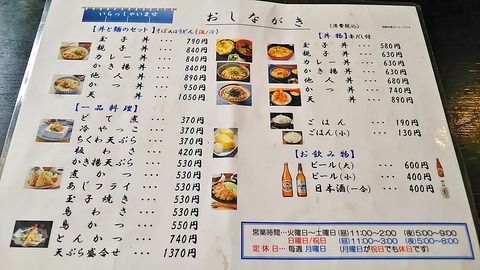 いらっしゃいませ
おしながき
(消費税込)
【丼と麺のセット】そば又はうどん(温/冷)
玉子丼 … 790円
親子丼 … 840円
カレー丼 … 840円
かき揚丼 … 840円
他人丼 … 890円
かつ丼 … 950円
天丼 … 1050円
【一品料理】
どて煮 … 370円
冷やっこ … 370円
ちくわ天ぷら … 370円
板わさ … 420円
かき揚天ぷら … 530円
煮かつ … 530円
あじフライ … 530円
玉子焼き … 530円
鳥わさ … 530円
鳥かつ … 550円
とんかつ … 740円
天ぷら盛合せ … 1370円
【丼物】赤だし付
玉子丼 … 580円
親子丼 … 630円
カレー丼 … 630円
かき揚丼 … 630円
他人丼 … 680円
かつ丼 … 790円
天丼 … 890円
ごはん … 190円
ごはん(小) … 130円
【お飲み物】
ビール(大) … 600円
ビール(小) … 400円
日本酒(一合) … 400円
営業時間…火曜日～土曜日 (昼)11:00～2:00 (夜)5:00～9:00
日曜日/祝日 (昼)11:00～3:00 (夜)5:00～8:00
定休日…毎週 月曜日 (月曜日が祝日でも休日です)